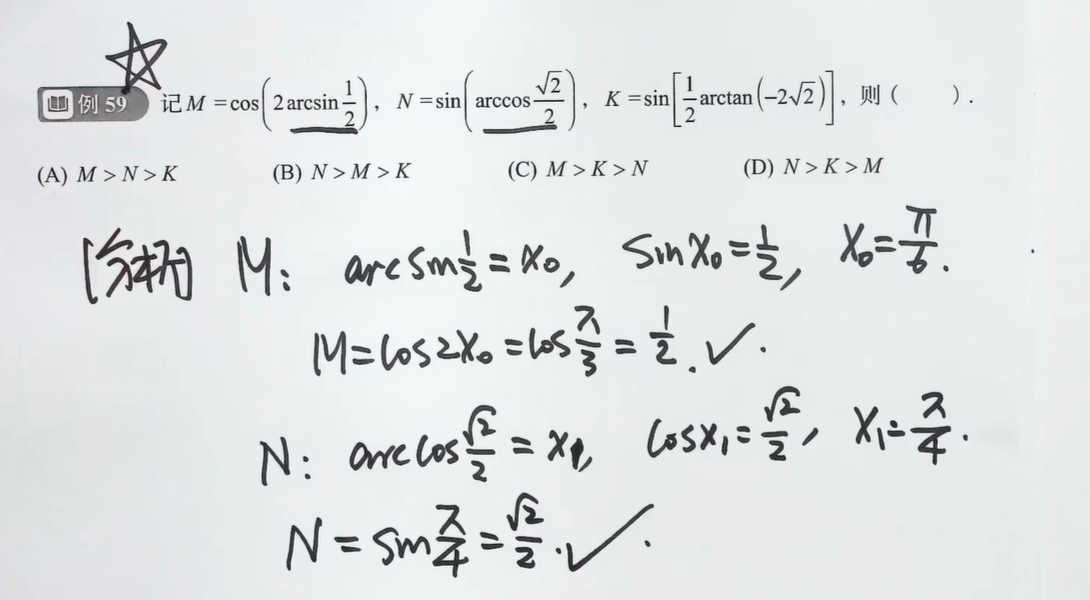 例 59 记 M = cos(2 arcsin 1/2), N = sin(arccos √2/2), K = sin[1/2 arctan(−2√2)], 则 ( ).
(A) M > N > K (B) N > M > K (C) M > K > N (D) N > K > M
[分析] M: arcsin 1/2 = x₀, sin x₀ = 1/2, x₀ = π/6.
M = cos 2x₀ = cos π/3 = 1/2. ✓.
N: arccos √2/2 = x₁, cos x₁ = √2/2, x₁ = π/4.
N = sin π/4 = √2/2. ✓.